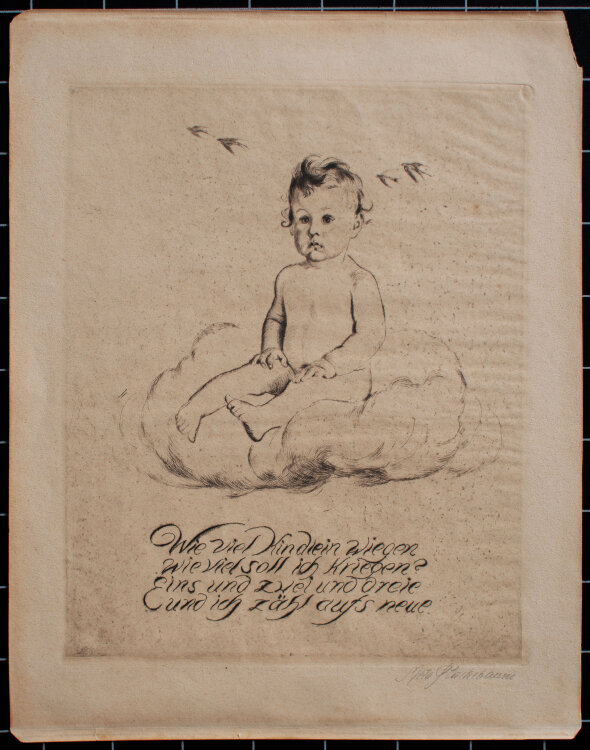 Wie viel Kindlein wiegen
wie viel soll ich kriegen?
Eins und zwei und dreie
und ich zähl aufs neue